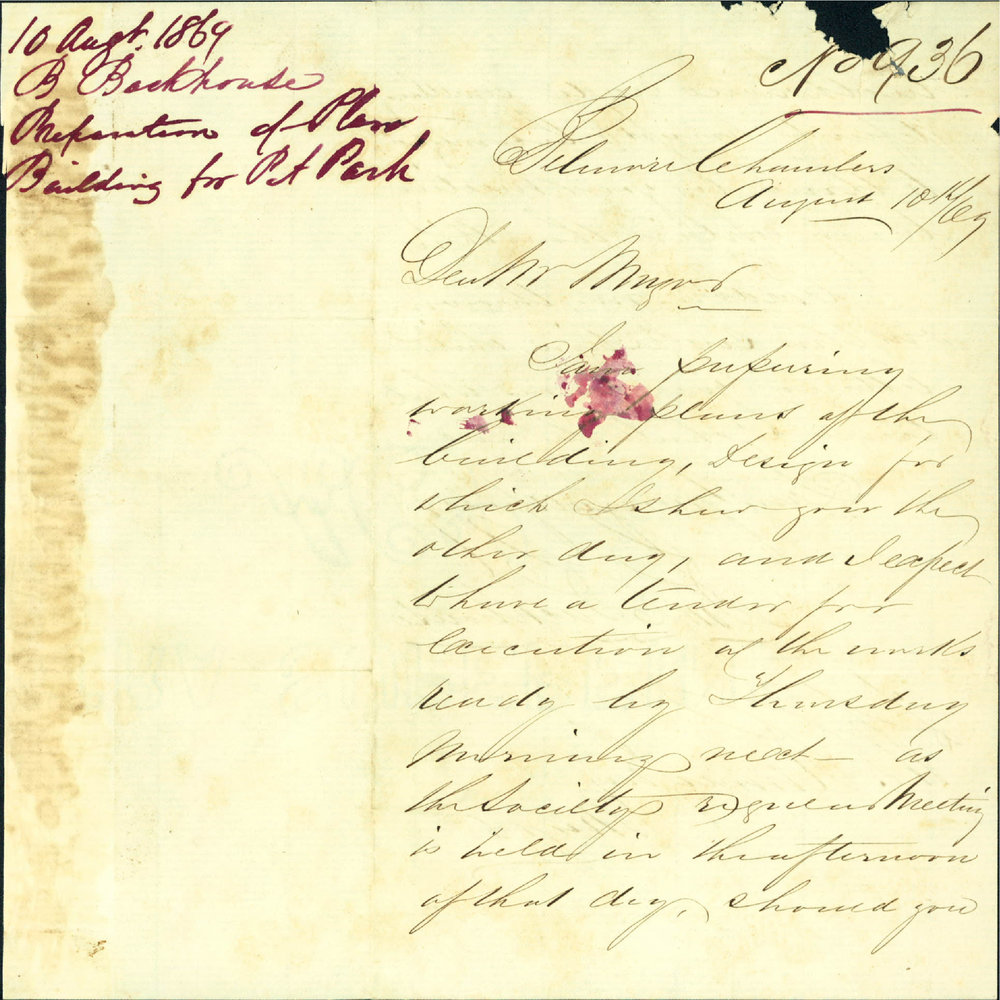 10 Augt. 1869
B Backhouse
Preparation of Plans
Building for Pt Park
No 936
Chambers
August 10th/69
Dear Mr Mayor
I am preparing
working plans of the
building, design for
which I shew you the
other day, and I expect
to have a tender for
execution of the works
ready by Thursday
morning next – as
the Society's regular Meeting
is held in the afternoon
of that day, should you